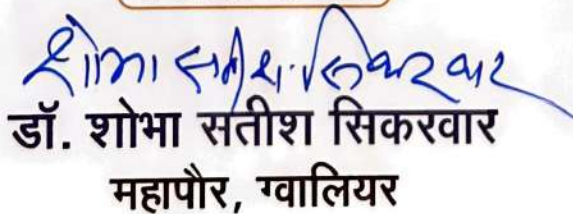 शोभा सतीश सिकरवार
डॉ. शोभा सतीश सिकरवार
महापौर, ग्वालियर